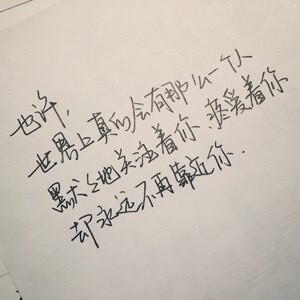 也许,
世界上真的会有那么一个人
默默地关注着你、疼爱着你
却永远不再靠近你.